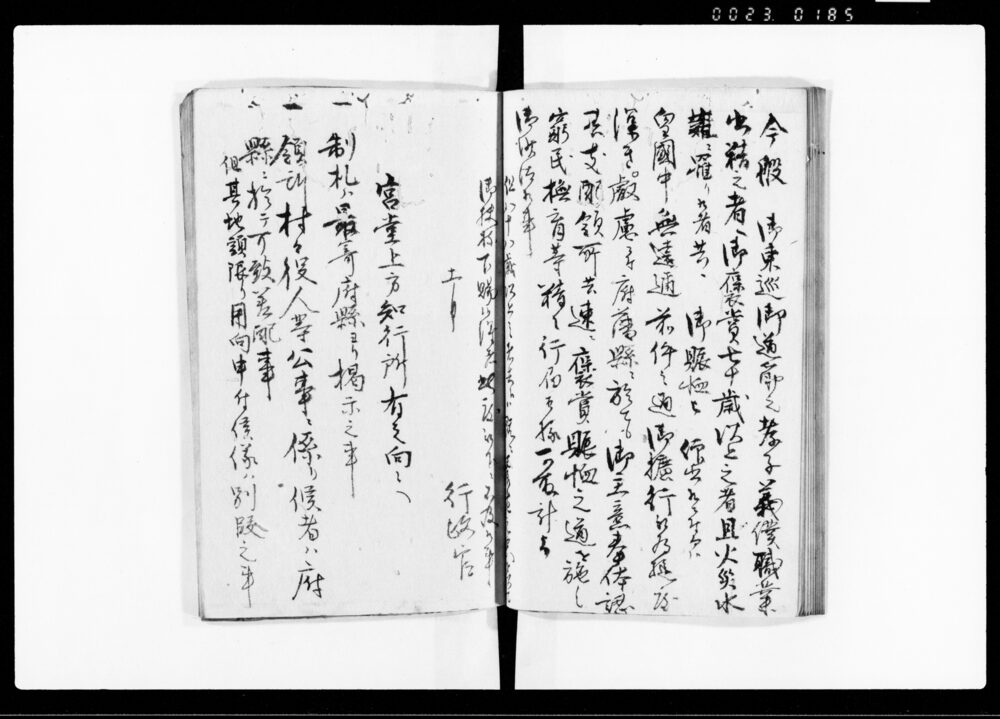 0023 0185
今般 御東巡御道筋之孝子義僕職業
出精之者ヘ御褒賞七十歳以上之者且火災水
難ニ罹リ候者共ヘ 御賑恤被 仰出候ニ付而ハ
皇國中無遠邇前件之通御擴行被為遊度
深キ叡慮ニ付府藩縣ニ於ても御主意奉体認
其支配領所共速ニ褒賞賑恤之道を施し
窮民撫育等精々行届候様可取計旨
御沙汰候事
但八十八歳以上之者
御扶持下賜
十一月
行政官
宮堂上方知行所有之向々ヘ
一 制札ハ最寄府縣ヨリ掲示之事
一 領所村々役人等公事ニ係リ候者ハ府
縣ニ於テ可致差配事
但其地頭限リ用向申付候儀ハ別段之事